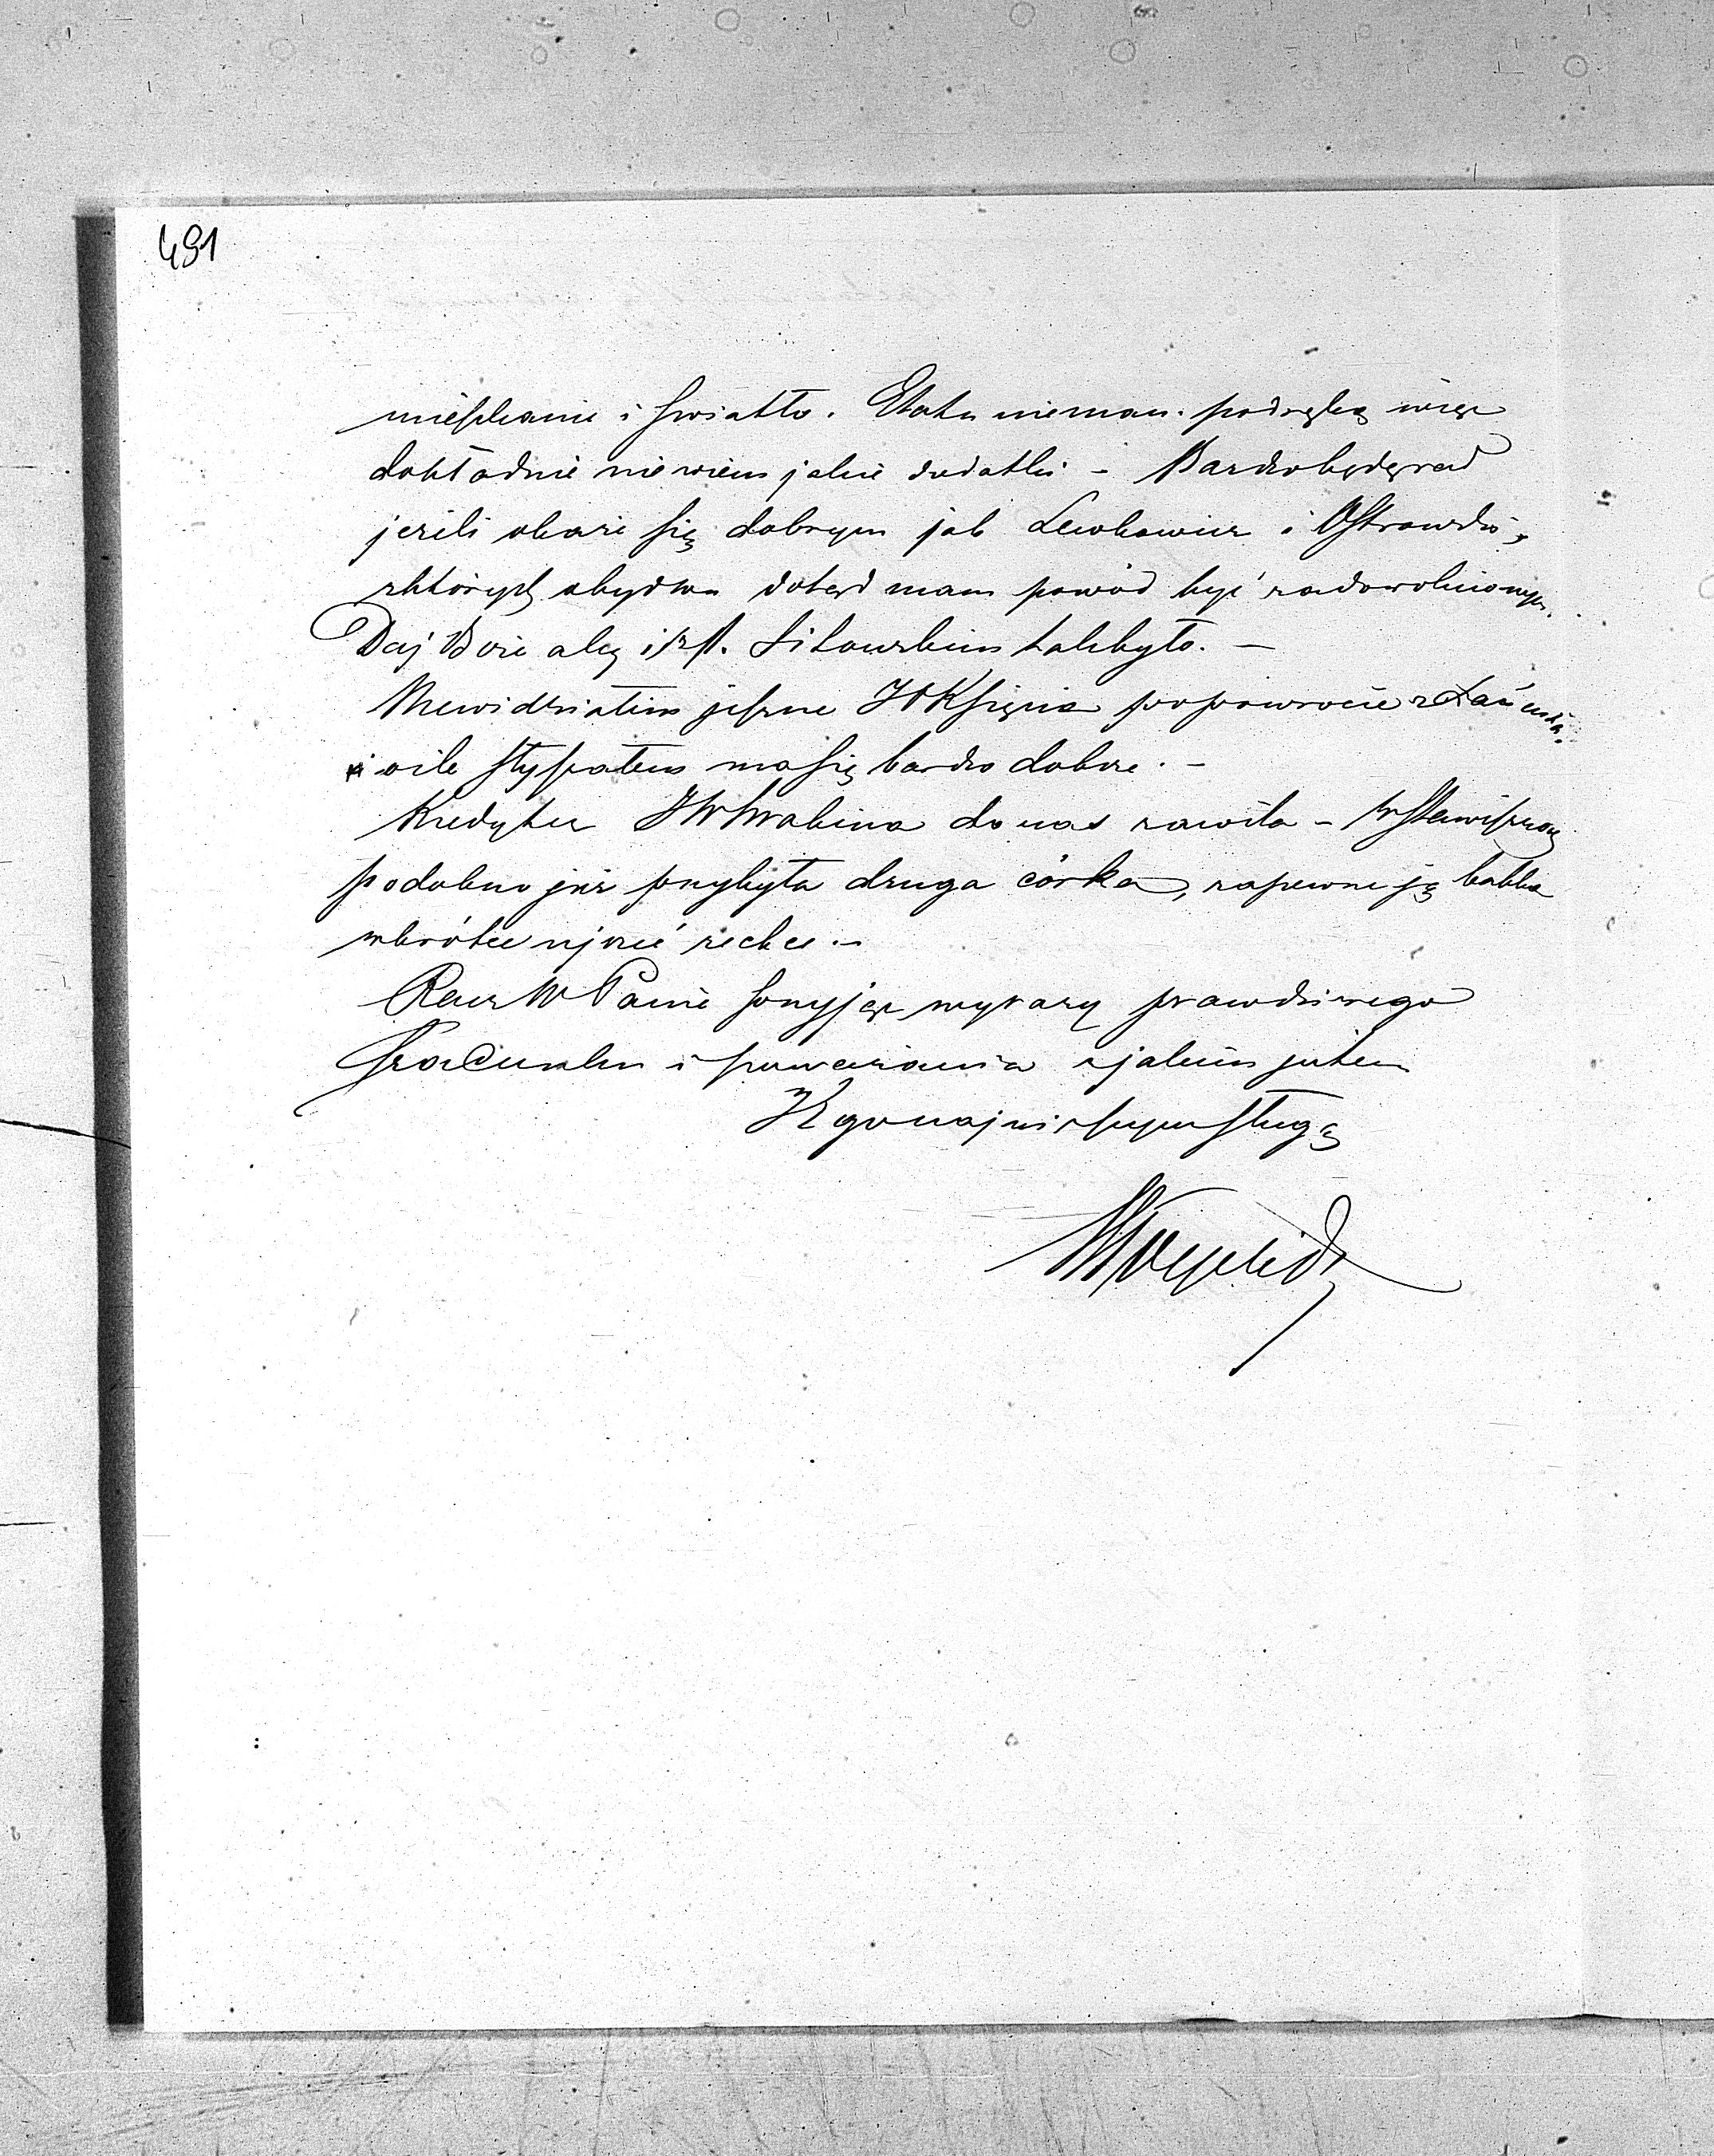 491
mieszkanie i światło. Etatu niemam pod ręką więc
dokładnie nie wiem jakie dodatki - Bardzo będę rad
jeżeli okaże się dobrym jak Lewkowicz i Ostrowski,
z których obydwu dotąd mam powód być zadowolnionym.
Daj Boże aby i z p. Sikorskim tak było. -
Niewidziałem jeszcze JO Księcia po powrocie z Łańcuta
i o ile słyszałem ma się bardzo dobrze. -
Kiedyż tu JW Hrabina do nas zawita - W Stawiszczach
podobno już przybyła druga córka, zapewne ją babka
wkrótce ujrzeć zechce. -
Racz W Panie przyjąć wyrazy prawdziwego
szacunku i poważania z jakim jestem
Jego najniższym sługą